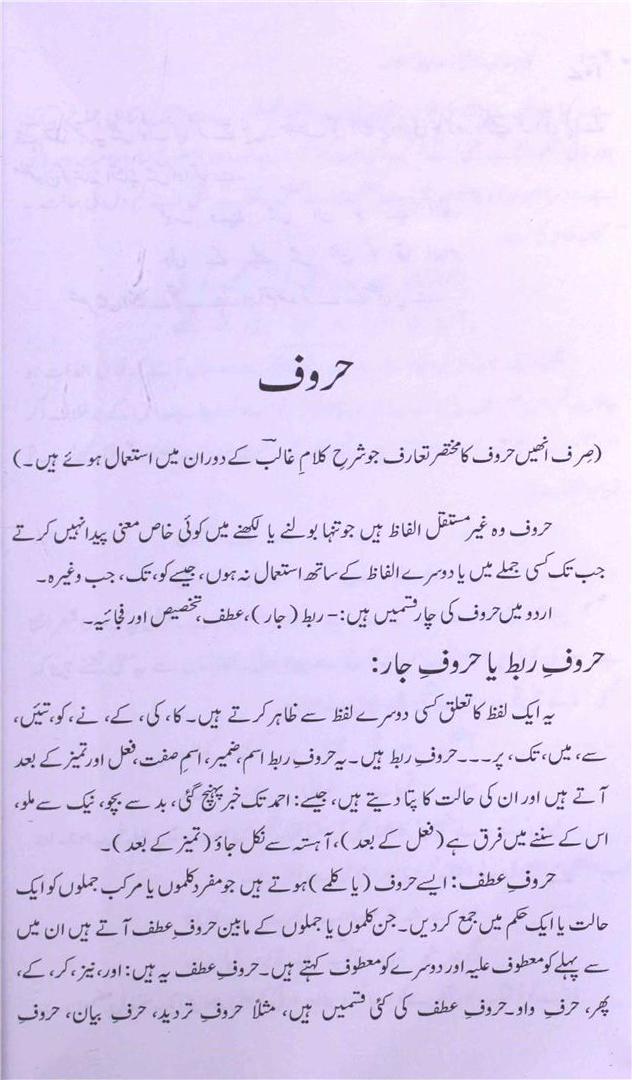 حروف
(صِرف انھیں حروف کا مختصر تعارف جو شرحِ کلامِ غالبؔ کے دوران میں استعمال ہوئے ہیں۔)
حروف وہ غیر مستقل الفاظ ہیں جو تنہا بولنے یا لکھنے میں کوئی خاص معنی پیدا نہیں کرتے
جب تک کسی جملے میں یا دوسرے الفاظ کے ساتھ استعمال نہ ہوں، جیسے کو، تک، جب وغیرہ۔
اردو میں حروف کی چار قسمیں ہیں:- ربط (جار)، عطف، تخصیص اور فجائیہ۔
حروفِ ربط یا حروفِ جار:
یہ ایک لفظ کا تعلق کسی دوسرے لفظ سے ظاہر کرتے ہیں۔ کا، کی، کے، نے، کو، تئیں،
سے، میں، تک، پر۔۔۔ حروفِ ربط ہیں۔ یہ حروفِ ربط اسم، ضمیر، اسمِ صفت، فعل اور تمیز کے بعد
آتے ہیں اور ان کی حالت کا پتا دیتے ہیں، جیسے: احمد تک خبر پہنچ گئی، بد سے بچو، نیک سے ملو،
اس کے سننے میں فرق ہے (فعل کے بعد)، آہستہ سے نکل جاؤ (تمیز کے بعد)۔
حروفِ عطف: ایسے حروف (یا کلمے) ہوتے ہیں جو مفرد کلموں یا مرکب جملوں کو ایک
حالت یا ایک حکم میں جمع کر دیں۔ جن کلموں یا جملوں کے مابین حروفِ عطف آتے ہیں ان میں
سے پہلے کو معطوف علیہ اور دوسرے کو معطوف کہتے ہیں۔ حروفِ عطف یہ ہیں: اور، نیز، کر، کے،
پھر، حرفِ واو۔ حروفِ عطف کی کئی قسمیں ہیں، مثلاً حروفِ تردید، حرفِ بیان، حروفِ